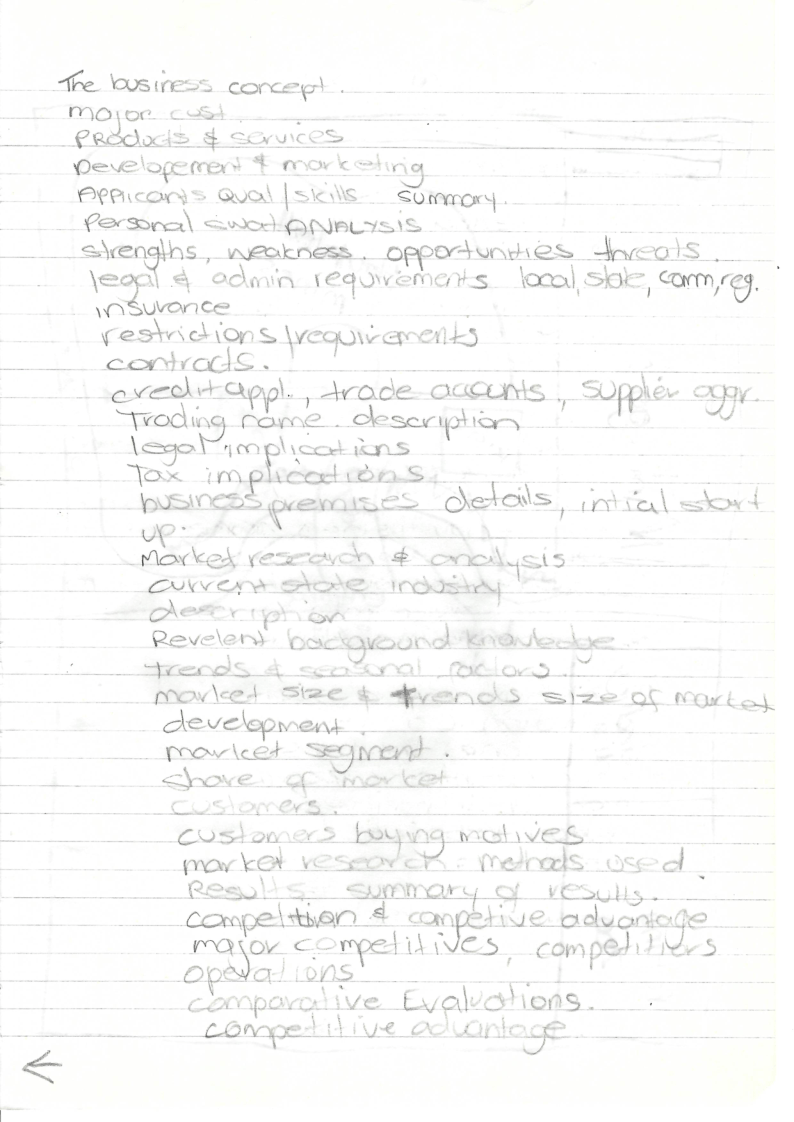 The business concept.
major cust.
PRoducts & services
Developement & marketing
APPlicants Qual/skills summary.
Personal swot ANALYSIS
strengths, weakness. opportunities threats.
legal & admin requirements local, state, comm, reg.
insurance
restrictions/requirements
contracts.
credit appl., trade accounts, supplier aggr.
Trading name. description
legal implications
Tax implications
business premises details, intial start
up.
Market research & analysis
current state industry
description
Revelent background knowledge
trends & seasonal factors.
market size & trends size of market
development.
market segment.
share of market
customers.
customers buying motives
market research - methods used.
Results - summary of results.
competition & competive advantage
major competitives, competitiers
operations
comparative Evaluations.
competitive advantage